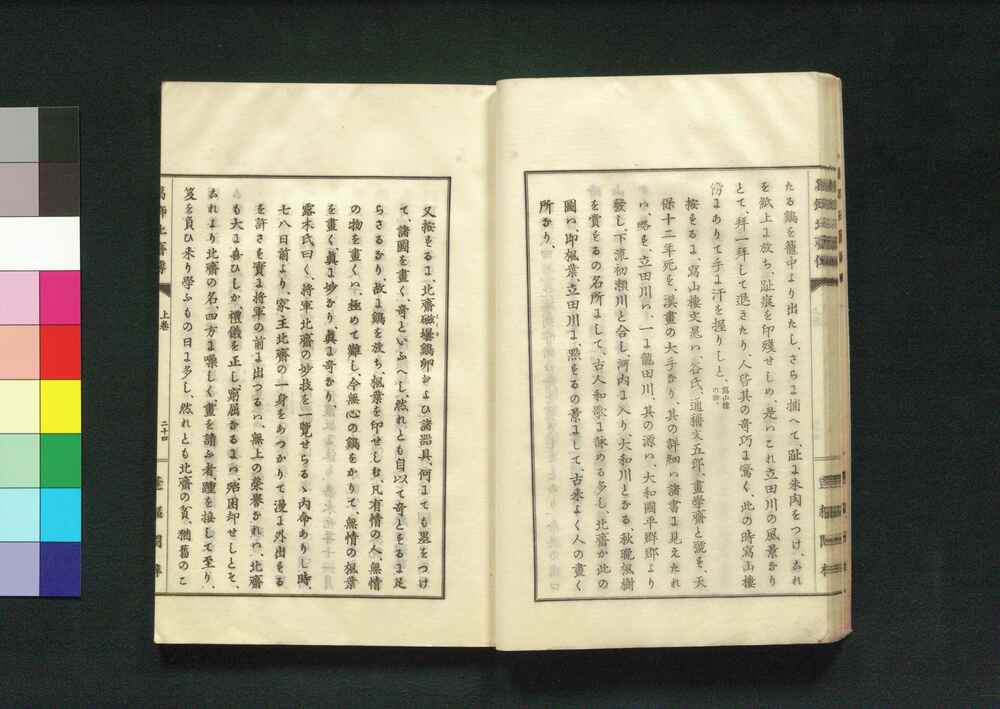 たる鷄を籠中より出たし、さらに捕へて、趾に朱肉をつけ、これ
を紙上に放ち、趾痕を印殘せしめ、是ハこれ立田川の風景なり
とて、拜一拜して退きたり、人皆其の奇巧に驚く、此の時寫山樓
傍にありて手に汗を握りしと、寫山樓の話、
按するに、寫山樓文晁ハ、谷氏、通稱文五郎、畫學齋と號す、天
保十二年死す、漢畫の大手なり、其の詳細ハ諸書に見えたれ
ハ、略す、立田川ハ、一に龍田川、其の源ハ、大和國平群郡より
發し、下流初瀨川と合し、河内に入り大和川となる、秋晩楓樹
を賞するの名所にして、古人和歌に詠める多し、北齋か此の
圖ハ、即楓葉、立田川に點するの景にして、古来よく人の畫く
所なり、
又按するに、北齋磁壜鷄卵および諸器具、何にても墨をつけ
て、諸圖を畫く、奇といふへし、然れとも自以て奇とするに足
らさるなり、故に鷄を放ち、楓葉を印せしむ、凡有情の人、無情
の物を畫くハ、極めて難し、今無心の鷄をかりて、無情の楓葉
を畫く、眞に妙なり、眞に奇なり、
露木氏曰く、將軍北齋の妙技を一覽せらるゝ内命ありし時、
七八日前より、家主北齋の一身をあつかりて漫に外出する
を許さす實に將軍の前に出つるハ、無上の榮譽なれハ、北齋
も大に喜ひしか、禮儀を正し、窮屈なるにハ、殆困却せしとそ、
これより北齋の名、四方に噪しく、畫を請ふ者、踵を接して至り、
笈を負ひ来り學ふもの日に多し、然れとも北齋の貧、猶舊のこ
上卷
二十四